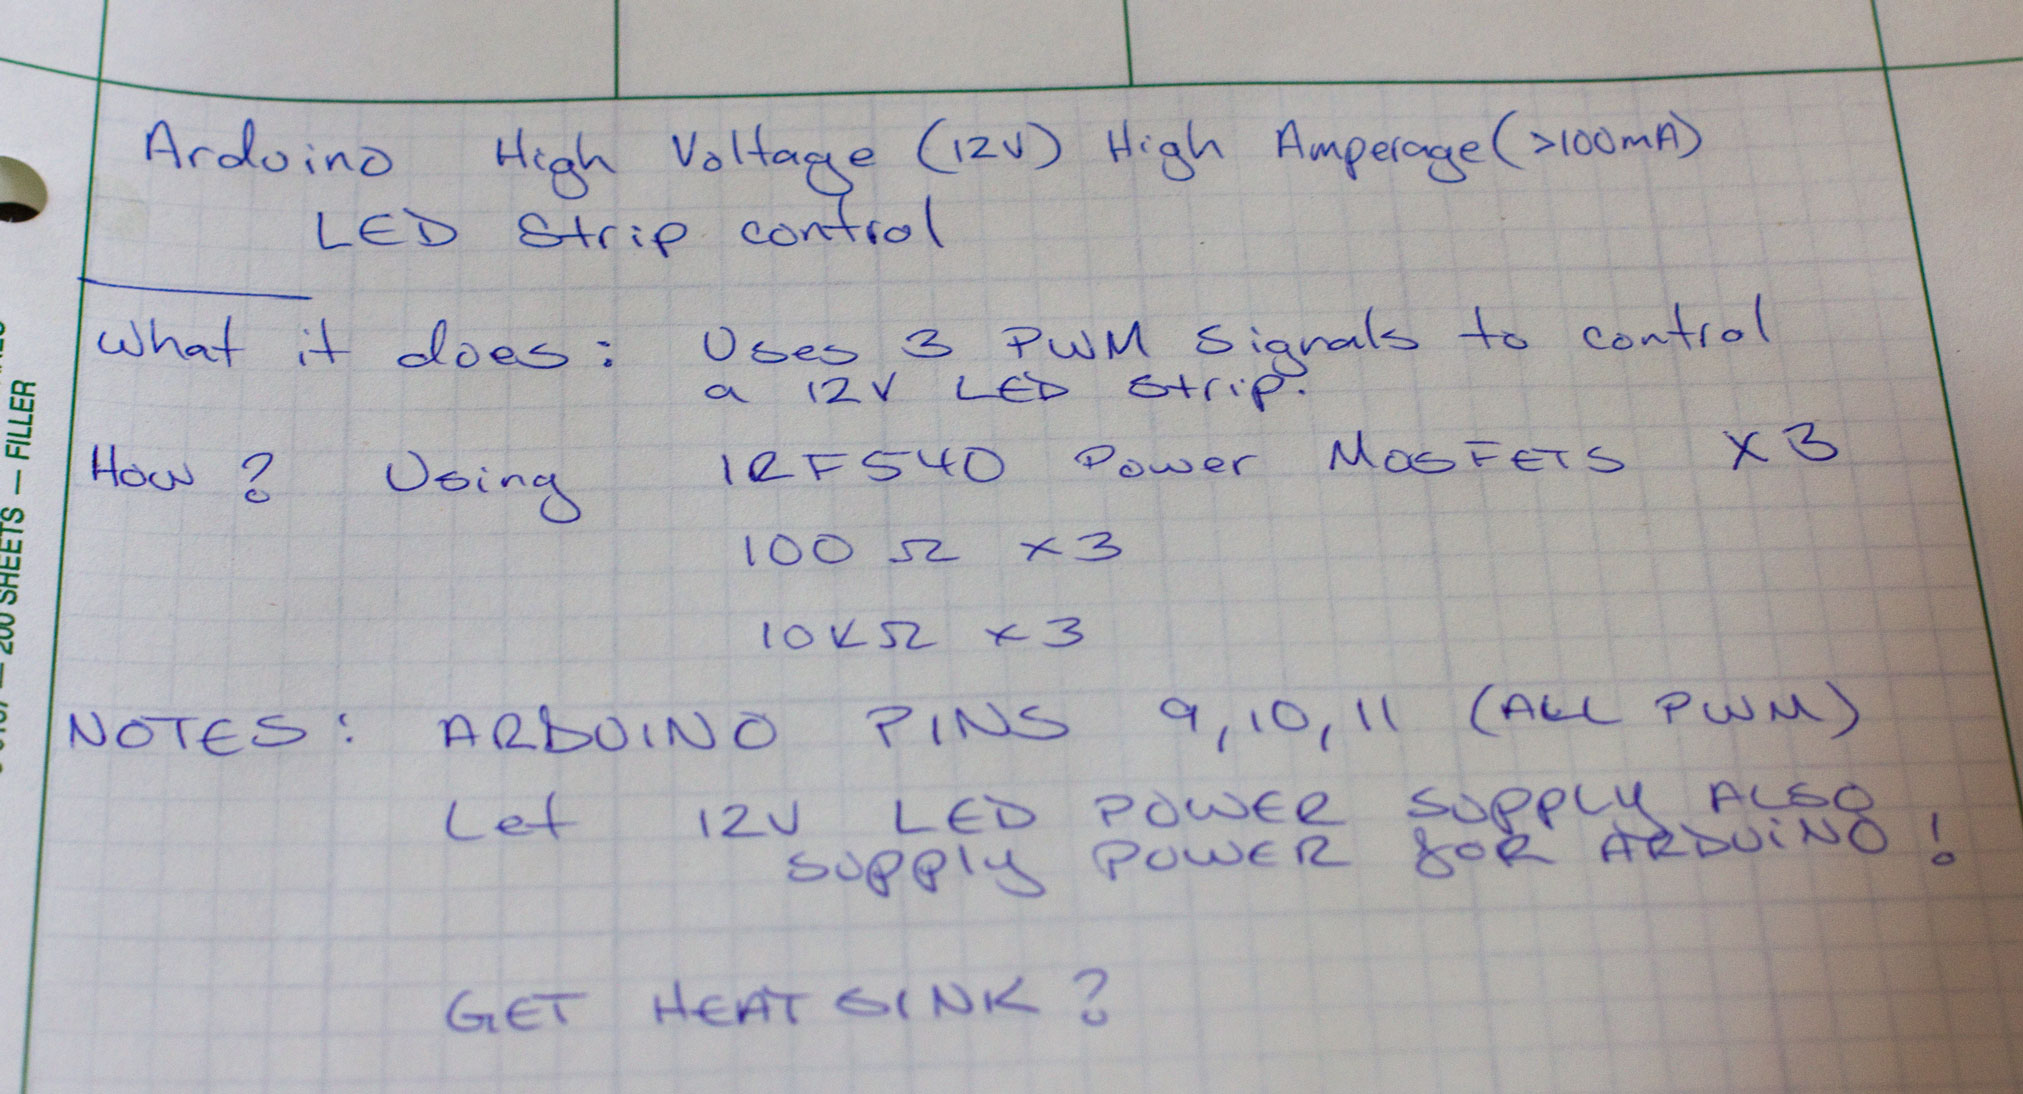 Arduino High Voltage (12V) High Amperage (>100mA)
LED Strip control
What it does: Uses 3 PWM Signals to control
a 12V LED Strip.
How? Using IRF540 Power MOSFETS X3
100 Ω x3
10KΩ x3
NOTES: ARDUINO PINS 9,10,11 (ALL PWM)
Let 12V LED POWER SUPPLY ALSO
SUPPLY POWER FOR ARDUINO!
GET HEAT SINK?
200 SHEETS — FILLER